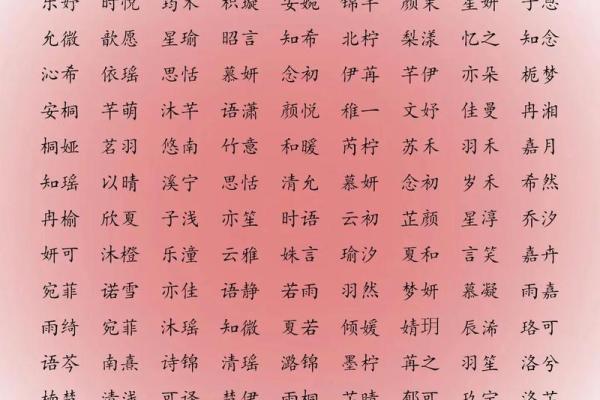 时悦 筠禾 积璇 安婉 锦芊 颜茉 星妍
允微 歆愿 星瑜 昭言 知希 北柠 梨漾 忆之 知念
沁希 依瑶 思恬 慕妍 念初 伊苒 芊伊 亦朵 栀梦
安桐 芊萌 沐芊 语潇 颜悦 稚一 文妤 佳曼 冉湘
桐娅 茗羽 悠南 竹意 和暖 芮柠 苏禾 羽禾 嘉月
知瑶 以晴 溪宁 思恬 清允 慕妍 念初 岁禾 希然
冉榆 欣夏 子浅 亦笙 时语 云初 芷颜 星淳 乔汐
妍可 沐橙 乐潼 云雅 姝言 瑜汐 夏和 言笑 嘉卉
宛菲 诺雪 亦佳 语静 若雨 羽然 梦妍 慕凝 雨嘉
雨绮 宛菲 沐瑶 知微 夏若 倾媛 婧玥 辰浠 珞可
语芩 南熹 诗锦 清瑶 潞锦 墨柠 苒之 羽笙 洛兮
清浅 可译 梦伊 雨桐 芊晴 郁可